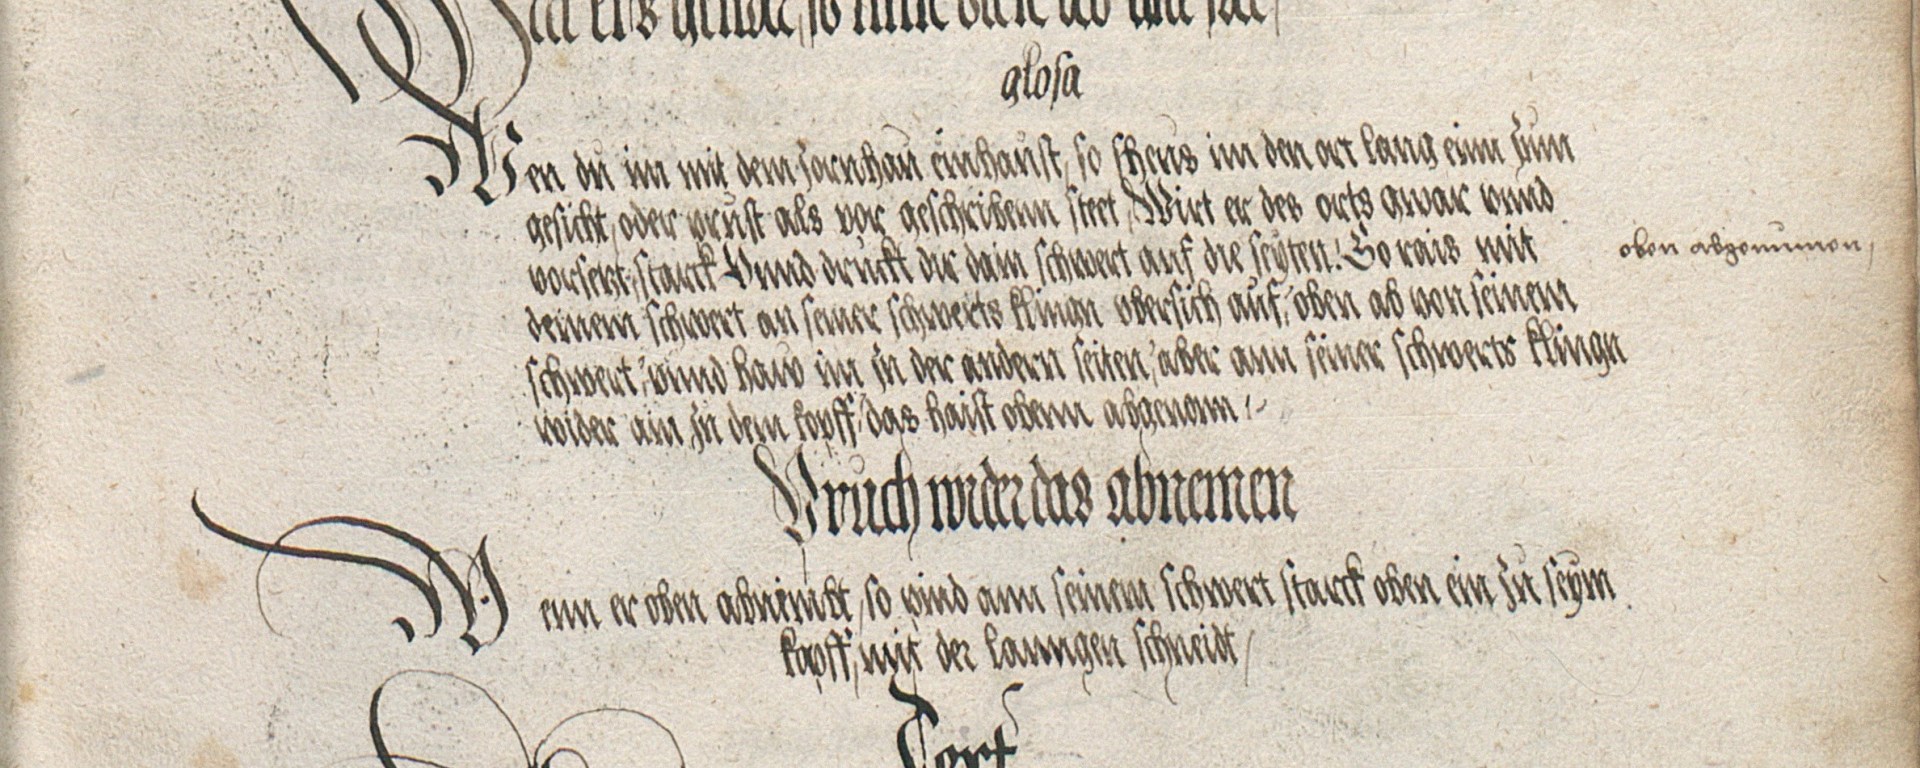 glosa
Wen du im mit dem zornhau einhaust, so scheus im den ort lang einn zum
gesicht, oder prust als vor geschribenn steet, Wirt er des orts gwar vnnd
vorsetzt, starck Vnnd druckt dir dain schwert auf die seyten. So rais mit
deinem schwert an seiner schwerts klingn vbersich auf, oben ab von seinem
schwert, vnnd haw im zu der andern seiten, aber ann seiner schwerts klingn
wider ain zu dem kopff, das haist obenn abgenom
oben abgenumen,
Pruch wider das abnemen
Wenn er oben abnimbt, so wind ann seinem schwert starck oben ein zu seym
kopff, mit der lanngen schneidt,
Text